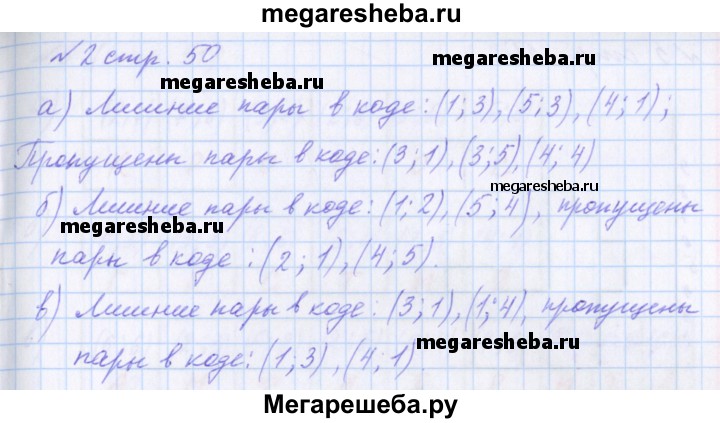 megaresheba.ru
№2 стр. 50
megaresheba.ru
megaresheba.ru
а) Лишние пары в коде: (1; 3), (5; 3), (4; 1);
Пропущены пары в коде: (3; 1), (3; 5), (4; 4)
megaresheba.ru
б) Лишние пары в коде: (1; 2), (5; 4), пропущены
megaresheba.ru
пары в коде: (2; 1), (4; 5).
в) Лишние пары в коде: (3; 1), (1; 4), пропущены
пары в коде: (1; 3), (4; 1).
megaresheba.ru
Мегарешеба.ру